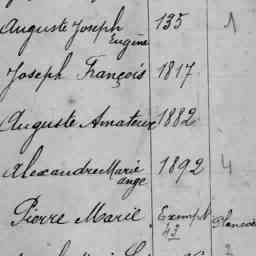 Auguste Joseph 135 1
Eugène
Joseph François 1817
Auguste Amateur 1882
Alexandre Marie 1892 4
ange
Pierre Marie Exempt
43